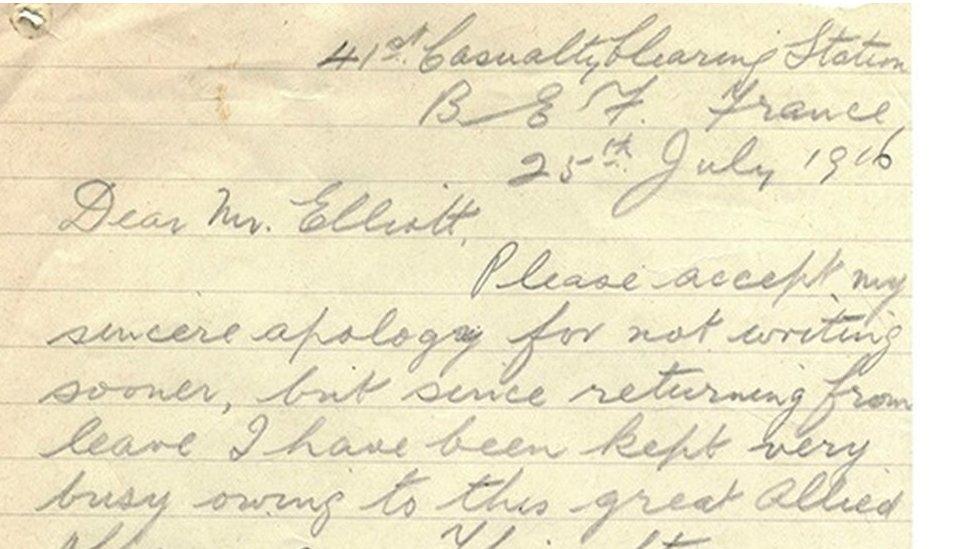 41st. Casualty Clearing Station
B E F. France
25th July 1916
Dear Mr. Elliott,
Please accept my
sincere apology for not writing
sooner, but since returning from
leave I have been kept very
busy owing to this great Allied